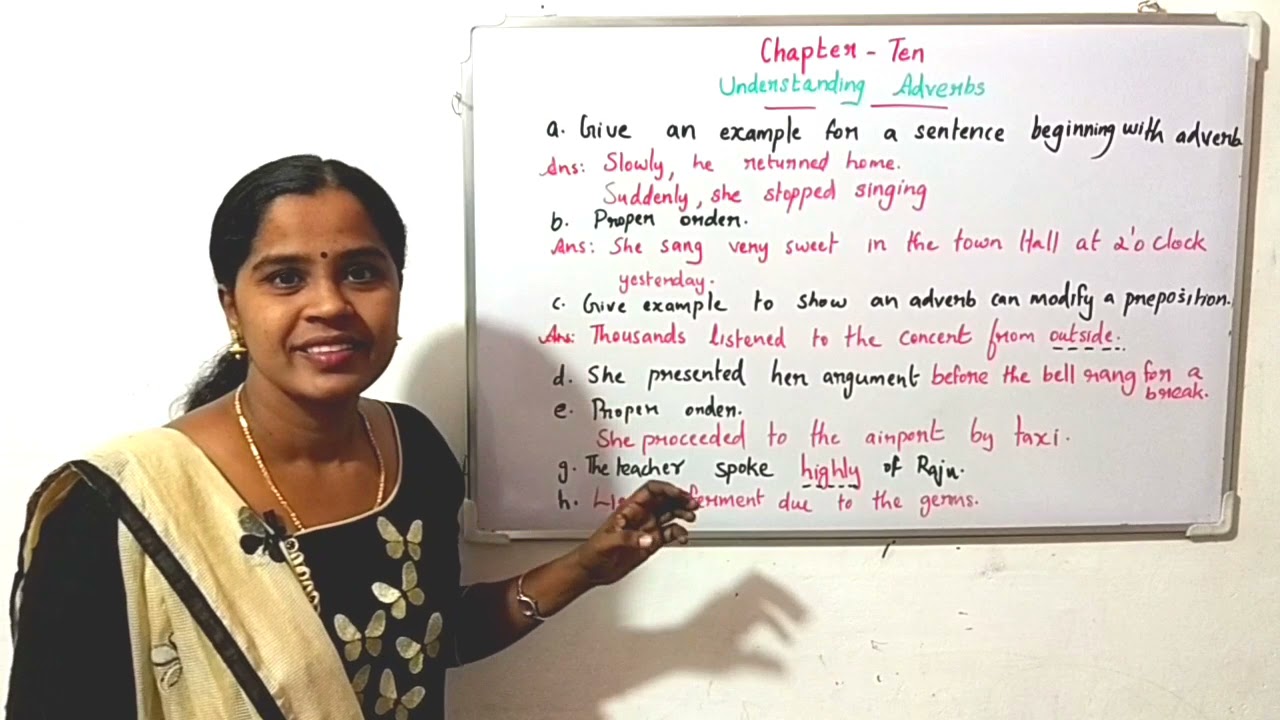 Chapter - Ten
Understanding Adverbs
a. Give an example for a sentence beginning with adverb
Ans: Slowly, he returned home.
Suddenly, she stopped singing
b. Proper order.
Ans: She sang very sweet in the town Hall at 2'o clock
yesterday.
c. Give example to show an adverb can modify a preposition.
Ans: Thousands listened to the concert from outside.
d. She presented her argument before the bell rang for a
break.
e. Proper order.
She proceeded to the airport by taxi.
g. The teacher spoke highly of Raju.
h. ferment due to the germs.